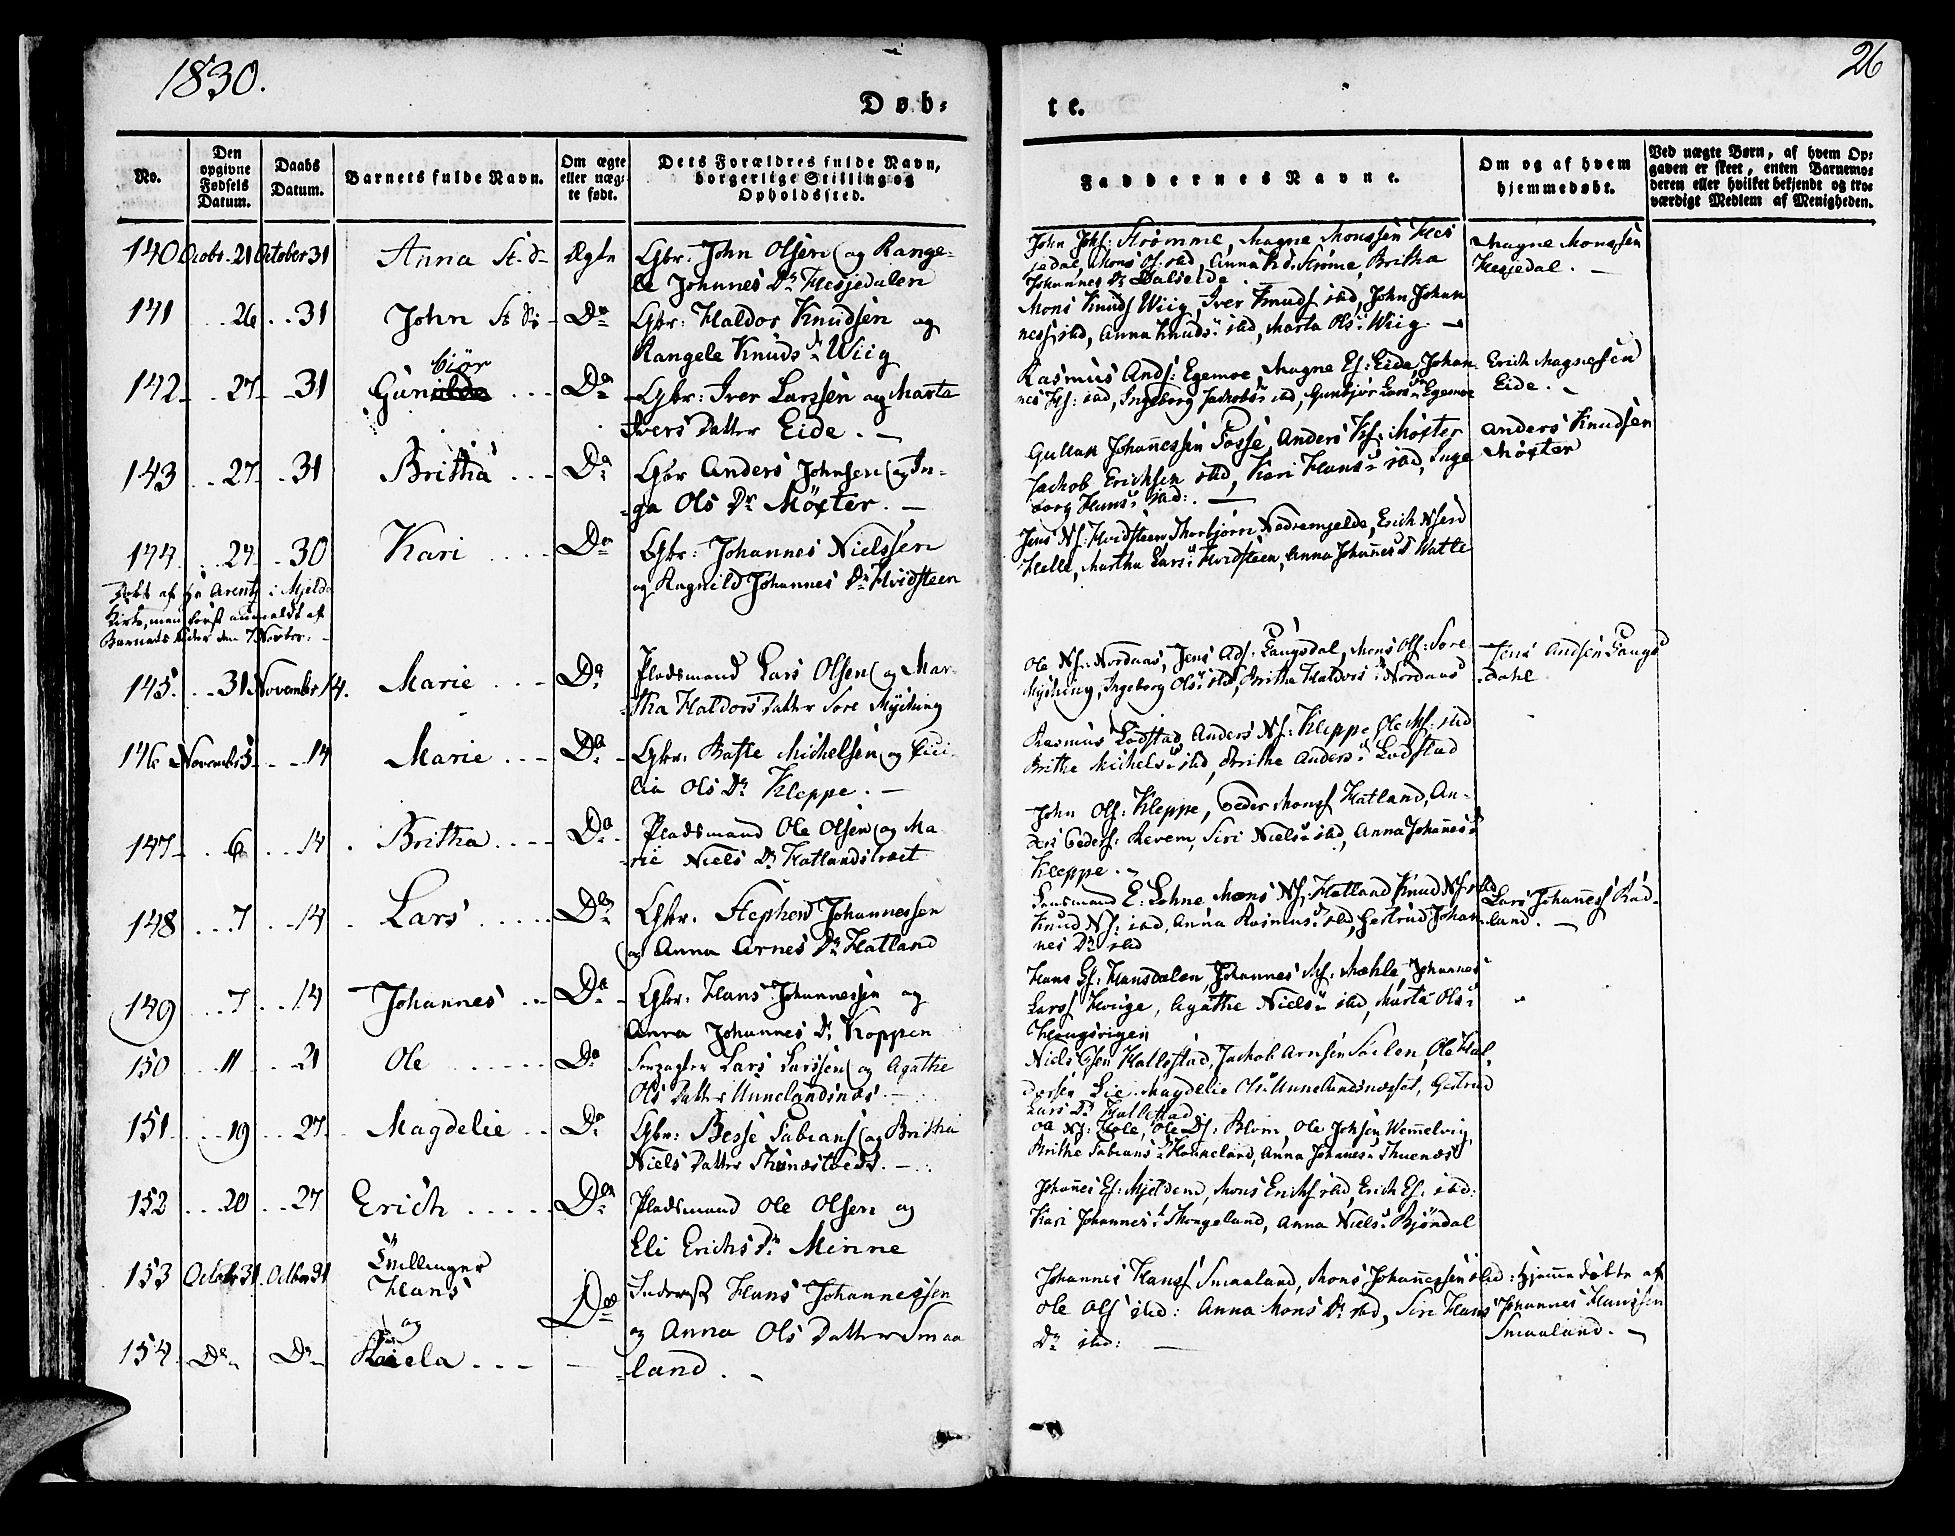 1830.
26
Døb-
te.
No.
Den opgivne Fødsels Datum.
Daabs Datum.
Barnets fulde Navn.
Om ægte eller uægte født.
Dets Forældres fulde Navn, borgerlige Stilling og Opholdssted.
Faddernes Navne.
Om og af hvem hjemmedøbt.
Ved uægte Børn, af hvem Opgaven er skeet, enten Barnemoderen eller hvilket bekjendt og troværdigt Medlem af Menigheden.
140 Octobr. 21 October 31 Anna Ægte Gbr: John Olsen og Range-
le Johannes Dr Hesjedalen
John Johs: Strømme, Magne Monssen Hes
jedal, Mons Strøme, Britha
Johannes Dr
Magne Monssen
Hesjedal. —
141 26 31 John Do Gbr: Haldor Knudsen og
Rangele Knuds Dr Wiig
Mons Knuds Wiig, Iver Knuds ibd, John Johan
ness ibd, Anna Knuds Dr ibd, Marta Ols Dr Wiig —
142 27 31 Gun biør Do Gbr: Iver Larssen og Marta
Ivers Datter Eide. —
Rasmus Ands: Egemoe, Magne Es: Eide, Johan
nes ibd, Ingeborg Jackobs Dr ibd, Gunbjør Lars Dr Egemoe
Erich Magnesen
Eide. —
143 27 31 Britha Do Gbr Anders Johnsen og In-
ga Ols Dr Møxter. —
Johannessen Fosse, Anders Ks: Møxter
Jackob Erichsen ibd, Kari Hans Dr ibd, Inge
borg Hans Dr ibd: —
Anders Knudsen
Møxter
144 24 30 Kari Do Gbr: Johannes Nielssen
og Ragnild Johannes Dr Hvidsteen
Jens Ns: Hvidsteen Thorbjørn Nedremjelde, Erich
Helle, Martha Lars Dr Hvidsteen, Anna Johannes Dr Watle
Døbt af Hr Arentz i Mjelde
Kirke, men først anmeldt af
Barnets Fader den 7 Novbr: —
145. 31 November 14. Marie Do Pladsmand Lars Olsen og Mar-
tha Haldors Datter Søre Myching
Ole Ns: Nordaas, Jens Ads: Langsdal, Mons Ols: Søre
Myching, Ingeborg Ols Dr ibd, Britha Haldors Dr Nordaas
Jens Andsen Langs
dahl
146 November 5 14 Marie Do Gbr: Michelsen og Cici-
lia Ols Dr Kleppe. —
Rasmus Ladstad, Anders Ns: Kleppe, Ole Ms: ibd
Brithe Michels Dr ibd, Brithe Anders Dr Ladstad
147 6 14 Britha Do Pladsmand Ole Olsen og Ma-
rie Niels Dr Hatlandstræet
John Ols: Kleppe, Peder Mons Hatland, An-
ders Peders: Revem, Siri Niels Dr ibd, Anna Johannes Dr
Kleppe. —
148 7 14 Lars Do Gbr. Stephen Johannessen
og Anna Arnes Dr Hatland
Lensmand E: Lohne Mons Ns: Hatland Knud Ns: ibd
Knud Ns: ibd, Anna Rasmus Dr ibd, Gertrud Johan
nes Dr ibd
Lars Johannes Rød-
land. —
149 7 14 Johannes Do Gbr: Hans Johannessen og
Anna Johannes Dr Koppen
Hans Gs: Hansdalen, Johannes Ms: Mæhle, Johannes
Lars Hauge, Agathe Niels Dr ibd, Marta Ols Dr
150 11 21 Ole Do Lars Larssen og Agathe
Ols Datter Unnelandsnæs. —
Niels Hallestad, Jackob Arnsen Sælen, Ole Hal-
dorsen Lie, Magdelie Ols Dr Unnelandsnæsset, Gertrud
Lars Dr Hallestad
151 19 27 Magdelie Do Gbr: Besse Fabians og Britha
Niels Datter Thunæstvedt. —
Ole Ns: Hole, Ole Ds: Blom, Ole Johsen Wemmelvig,
Brithe Fabians Dr Houneland, Anna Johanes Dr Thuenæs
152 20 27 Erich Do Pladsmand Ole Olsen og
Eli Erichs Dr Minne
Johannes Es: Mjeldem, Mons Erichs ibd, Erich Es: ibd:
Kari Johannes Dr Skougeland, Anna Niels Dr Bjøndal
153 October 31. October 31 Tvillinger
Hans
og
Do Hans Johannessen
og Anna Ols Datter Smaa
land. —
Johannes Hans Smaaland, Mons Johannessen ibd:
Ole Ols ibd: Anna Mons Dr ibd, Siri Hans
Dr ibd: —
hjemmedøbte af
Johannes Hanssen
Smaaland. —
154. Do Do